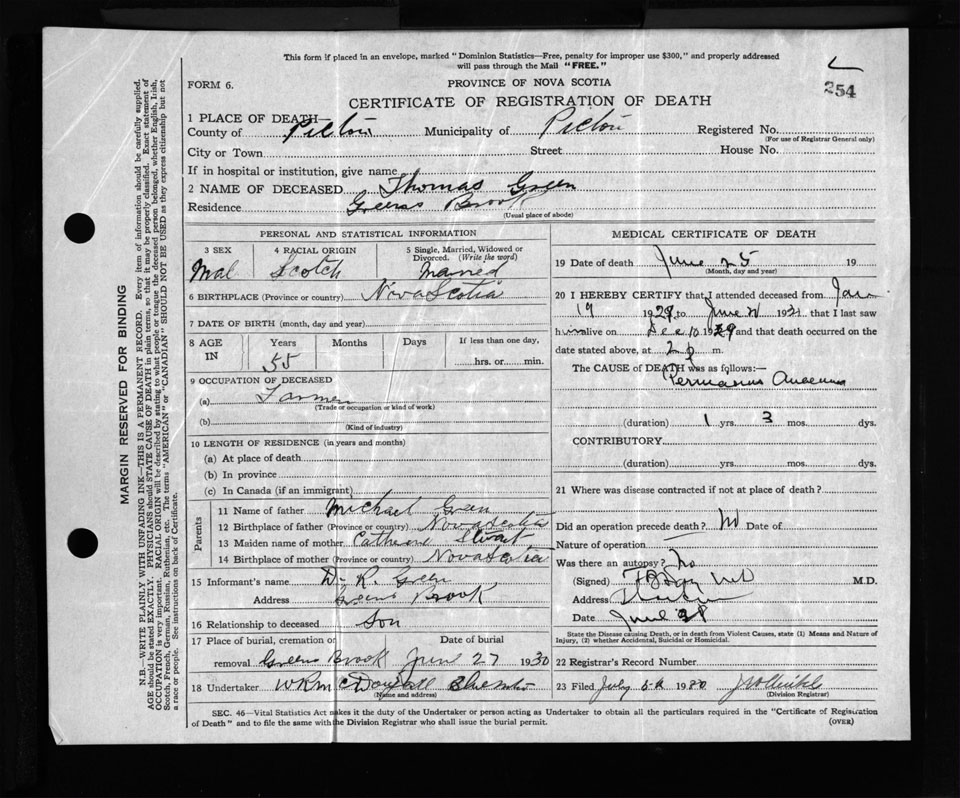 This form if placed in an envelope, marked "Dominion Statistics—Free, penalty for improper use $300," and properly addressed
will pass through the Mail "FREE."
254
FORM 6.
PROVINCE OF NOVA SCOTIA
CERTIFICATE OF REGISTRATION OF DEATH
1 PLACE OF DEATH
County of Pictou Municipality of Pictou Registered No.
(For use of Registrar General only)
City or Town Street House No.
If in hospital or institution, give name
2 NAME OF DECEASED Thomas Green
Residence Greens Brook
(Usual place of abode)
PERSONAL AND STATISTICAL INFORMATION
3 SEX 4 RACIAL ORIGIN 5 Single, Married, Widowed or Divorced. (Write the word)
Mal Scotch Married
6 BIRTHPLACE (Province or country) Nova Scotia
7 DATE OF BIRTH (month, day and year)
8 AGE IN Years Months Days If less than one day,
55 hrs. or min.
9 OCCUPATION OF DECEASED
(a) Farmer
(Trade or occupation or kind of work)
(b)
(Kind of industry)
10 LENGTH OF RESIDENCE (in years and months)
(a) At place of death
(b) In province
(c) In Canada (if an immigrant)
Parents
11 Name of father Michael Green
12 Birthplace of father (Province or country) Nova Scotia
13 Maiden name of mother Catherine Stuart
14 Birthplace of mother (Province or country) Nova Scotia
15 Informant's name D. R. Green
Address Greens Brook
16 Relationship to deceased Son
17 Place of burial, cremation or Date of burial
removal Greens Brook June 27 1930
18 Undertaker W R McDougall
(Name and address)
MEDICAL CERTIFICATE OF DEATH
19 Date of death June 25 19
(Month, day and year)
20 I HEREBY CERTIFY that I attended deceased from Jan
19 1929 to June that I last saw
him alive on Dec 10 1929 and that death occurred on
date stated above, at 2 p m.
The CAUSE of DEATH was as follows:—
(duration) 1 yrs. 3 mos. dys.
CONTRIBUTORY
(duration) yrs. mos. dys.
21 Where was disease contracted if not at place of death?
Did an operation precede death? No Date of
Nature of operation
Was there an autopsy? No
(Signed) M.D.
Address
Date June
State the Disease causing Death, or in death from Violent Causes, state (1) Means and Nature of
Injury, (2) whether Accidental, Suicidal or Homicidal.
22 Registrar's Record Number
23 Filed July 1930
(Division Registrar)
SEC. 46—Vital Statistics Act makes it the duty of the Undertaker or person acting as Undertaker to obtain all the particulars required in the "Certificate of Registration
of Death" and to file the same with the Division Registrar who shall issue the burial permit.
(OVER)
MARGIN RESERVED FOR BINDING
N.B.—WRITE PLAINLY WITH UNFADING INK—THIS IS A PERMANENT RECORD. Every item of information should be carefully supplied.
AGE should be stated EXACTLY. PHYSICIANS should STATE CAUSE OF DEATH in plain terms, so that it may be properly classified. Exact statement of
OCCUPATION is very important. RACIAL ORIGIN will be described by stating to what people or tongue the deceased person belonged, whether English, Irish,
Scotch, French, German, Russian, Ruthenian, etc. The terms "AMERICAN" or "CANADIAN" SHOULD NOT BE USED as they express citizenship but not
a race or people. See instructions on back of Certificate.